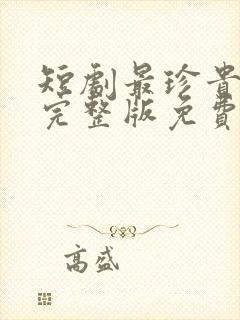 短劇最珍貴
完整版免費
高盛